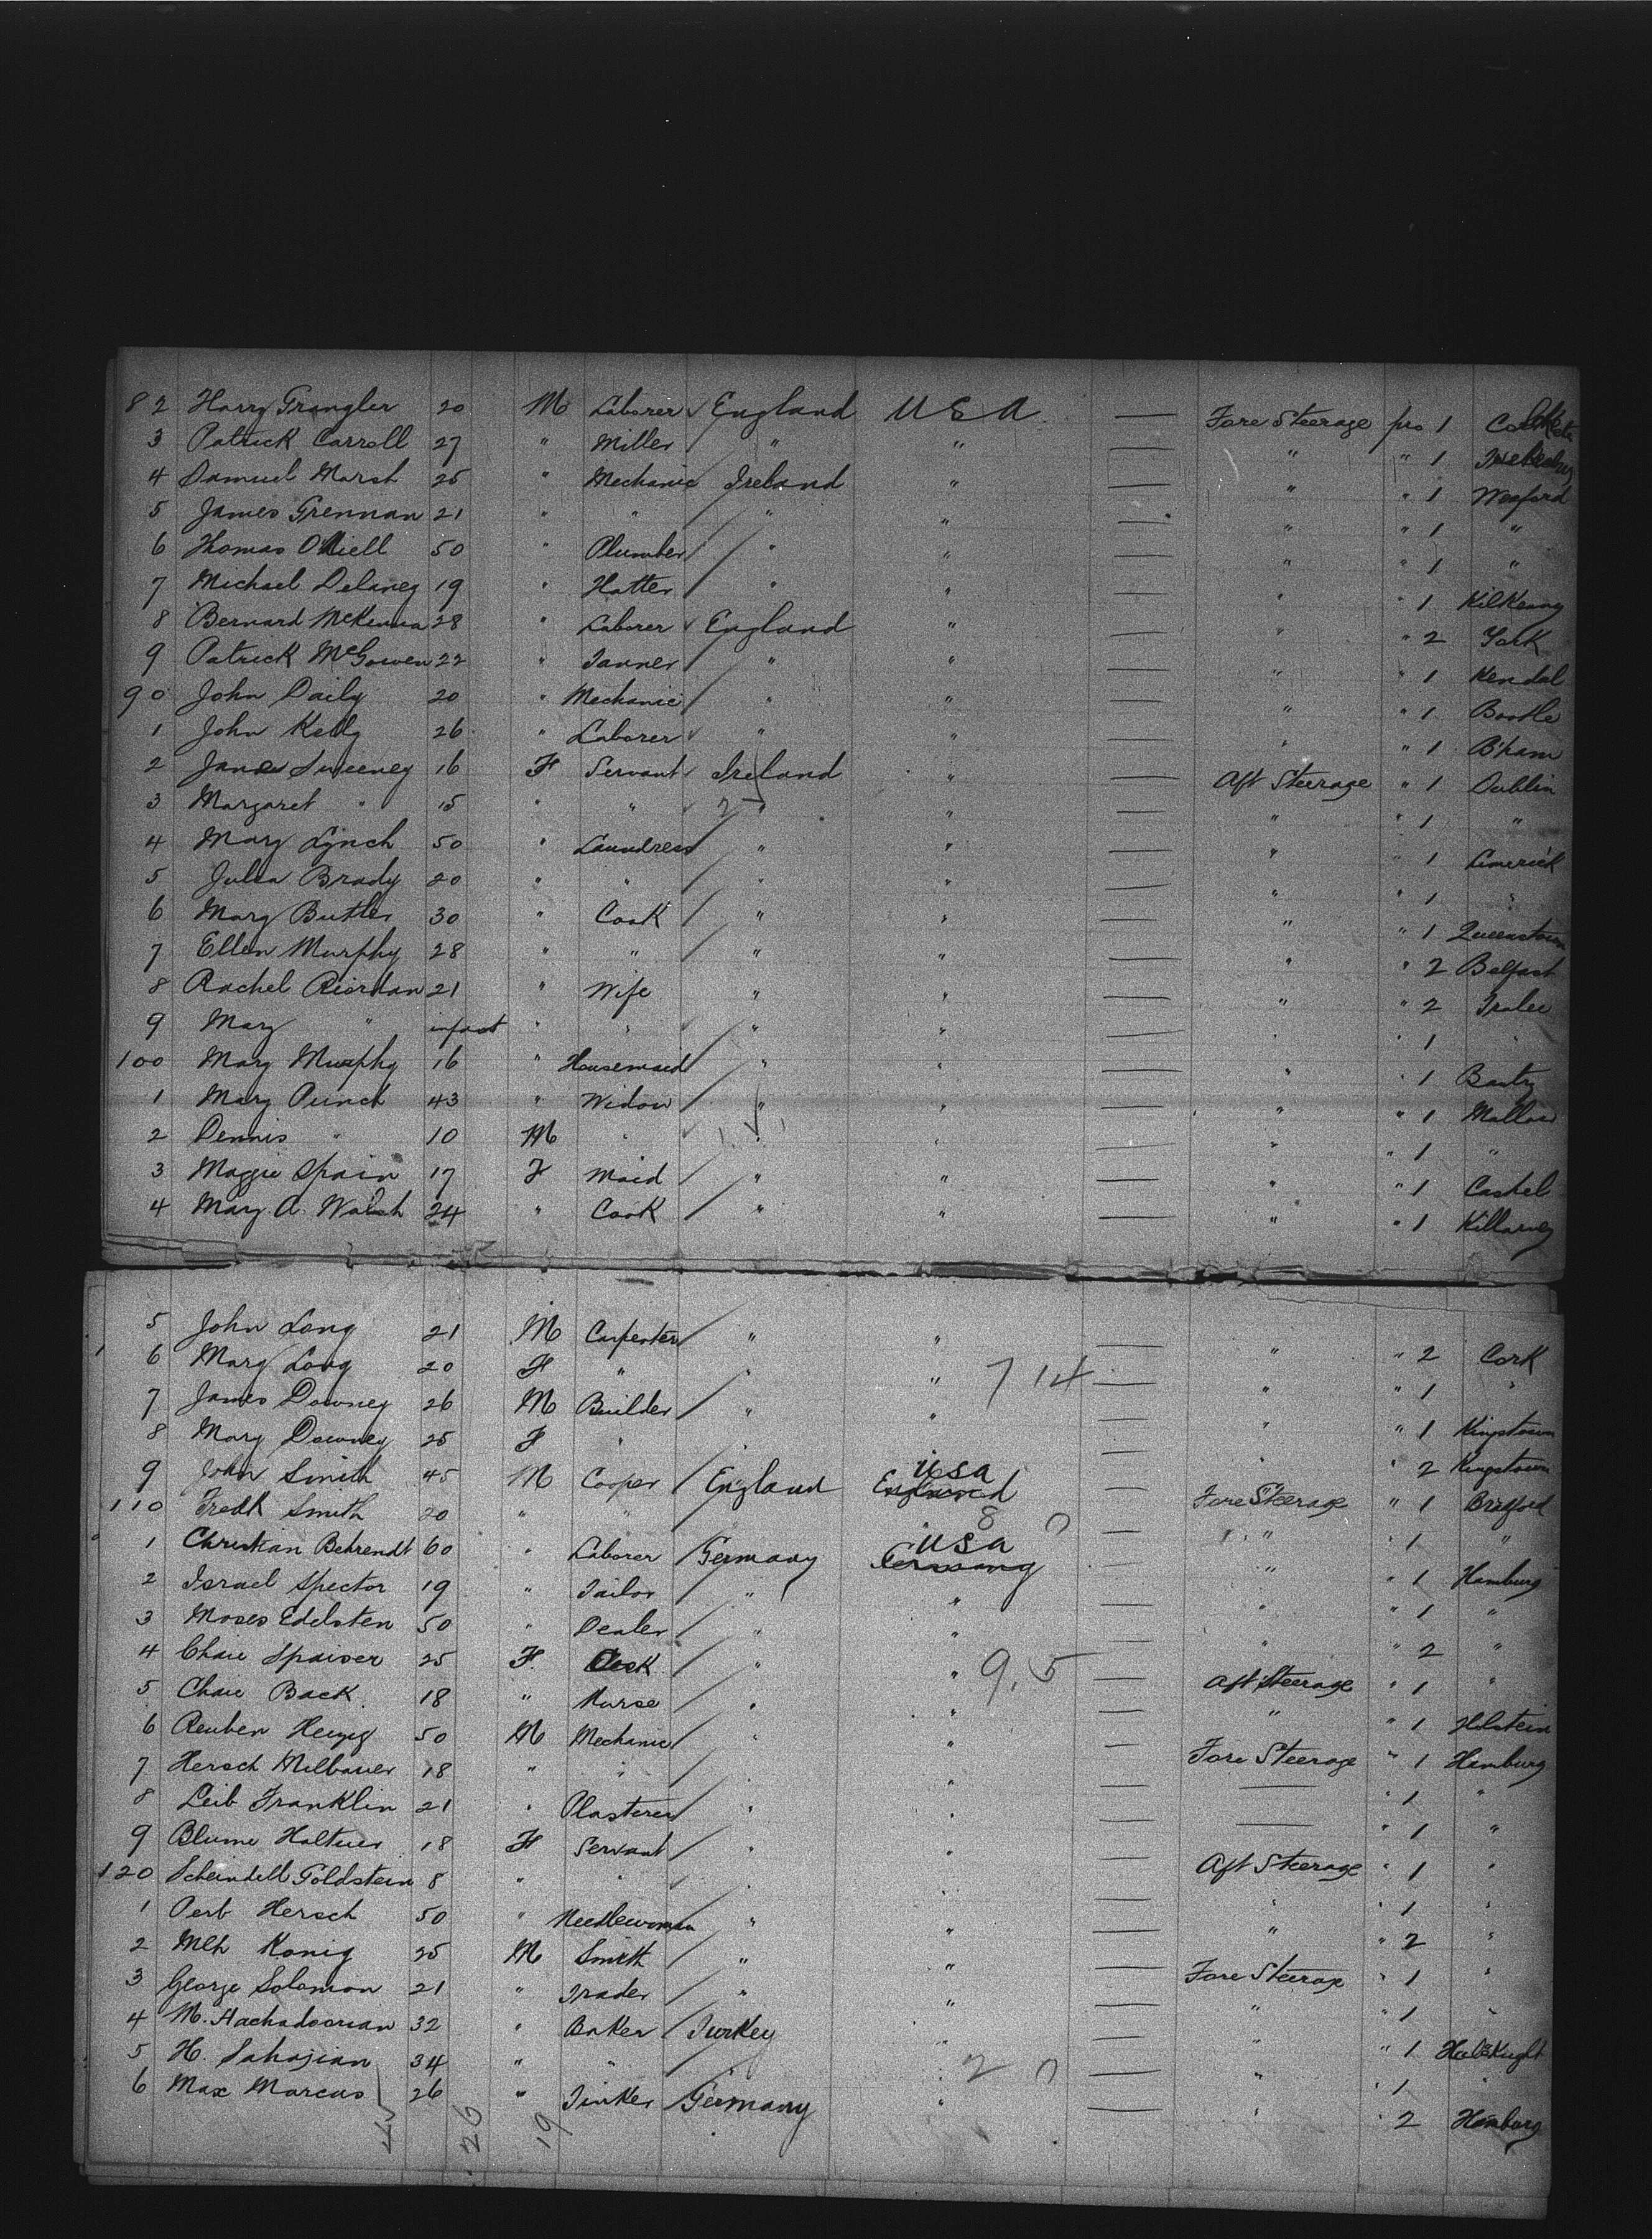 82 Harry Grangler 20 M Laborer England USA — Fore Steerage pro 1
3 Patrick Carroll 27 " Miller " " — " " 1
4 Samuel Marsh 25 " Mechanic Ireland " — " " 1 Wexford
5 James Grennan 21 " " " " — " " 1 "
6 Thomas O'Niell 50 " Plumber " " — " " 1 "
7 Michael Delaney 19 " Hatter " " — " " 1 Kilkenny
8 Bernard McKenna 28 " Laborer England " — " " 2 York
9 Patrick McGowen 22 " Tanner " " — " " 1 Kendal
90 John Daily 20 " Mechanic " " — " " 1 Bootle
1 John Kelly 26 " Laborer " " — " " 1 B'ham
2 Jane Sweeney 16 F Servant Ireland " — Aft Steerage " 1 Dublin
3 Margaret " 15 " " " " — " " 1 "
4 Mary Lynch 50 " Laundress " " — " " 1 Limerick
5 Julia Brady 20 " " " " — " " 1 "
6 Mary Butler 30 " Cook " " — " " 1 Queenstown
7 Ellen Murphy 28 " " " " — " " 2 Belfast
8 Rachel Riordan 21 " Wife " " — " " 2 Tralee
9 Mary " infant " " " " — " " 1 "
100 Mary Murphy 16 " Housemaid " " — " " 1 Bantry
1 Mary Punch 43 " Widow " " — " " 1 Mallow
2 Dennis " 10 M " " " — " " 1 "
3 Maggie Spain 17 F Maid " " — " " 1 Cashel
4 Mary A. Walsh 24 " Cook " " — " " 1 Killarney
5 John Long 21 M Carpenter " " — " " 2 Cork
6 Mary Long 20 F " " " 7 14 — " " 1 "
7 James Downey 26 M Builder " " — " " 1 Kingstown
8 Mary Downey 25 F " " — " " 2 Kingstown
9 John Smith 45 M Cooper England USA England — Fore Steerage " 1 Bradford
110 Fredk Smith 20 " " " " 8 0 — " " 1 "
1 Christian Behrendt 60 " Laborer Germany USA Germany — " " 1 Hamburg
2 Israel Spector 19 " Tailor " " — " " 1 "
3 Moses Edelsten 50 " Dealer " " — " " 2 "
4 Chaie Spaiser 25 F Cook " " 9.5 — Aft Steerage " 1 "
5 Chaie Back 18 " Nurse " " — " " 1 Holstein
6 Reuben 50 M Mechanic " " — Fore Steerage " 1 Hamburg
7 Hersch Milbauer 18 " " " " — — " 1 "
8 Leib Franklin 21 " Plasterer " " — — " 1 "
9 Blume 18 F Servant " " — Aft Steerage " 1 "
120 Scheindell Goldstein 8 " " " " — " " 1 "
1 Perb Hersch 50 " Needlewoman " " — " " 2 "
2 Mlh Konig 25 M Smith " " — Fore Steerage " 1 "
3 George Solomon 21 " Trader " " — " " 1 "
4 M. Hachadoorian 32 " Baker Turkey " — " " 1
5 H. Sahajian 34 " " " " 2 0 — " " 1 "
6 Max Marcus 26 " Tinker Germany " — " " 2 Hamburg
45 26 19